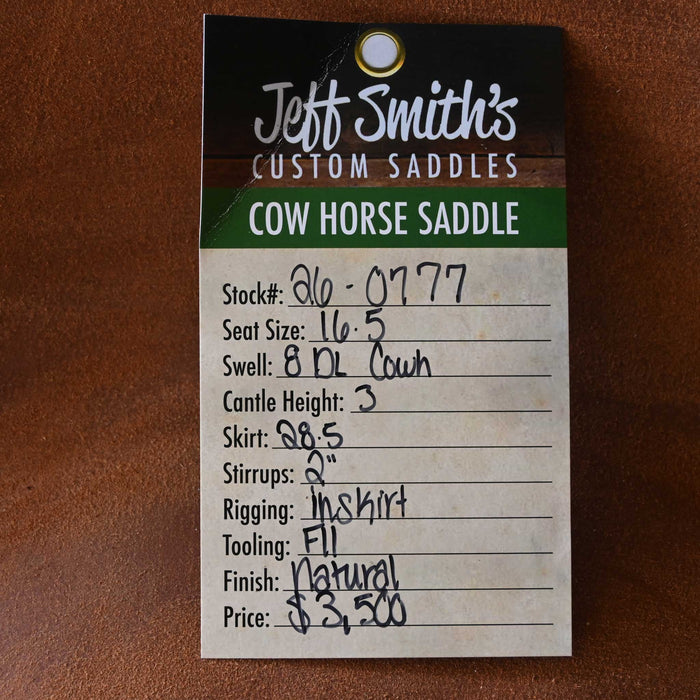 Jeff Smith's
CUSTOM SADDLES
COW HORSE SADDLE
Stock#: 26-0777
Seat Size: 16.5
Swell: 8 DL Cowh
Cantle Height: 3
Skirt: 28.5
Stirrups: 2"
Rigging: inskirt
Tooling: F11
Finish: Natural
Price: $3,500